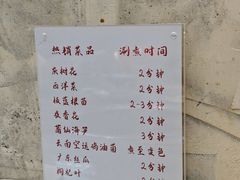 热销菜品 涮煮时间
灰树花 2分钟
西洋菜 2分钟
板蓝根苗 2-3分钟
夜香花 2分钟
葛仙海笋 3分钟
云南空运鸡油菌 煮至变色
广东丝瓜 2分钟
枸杞叶 2分钟